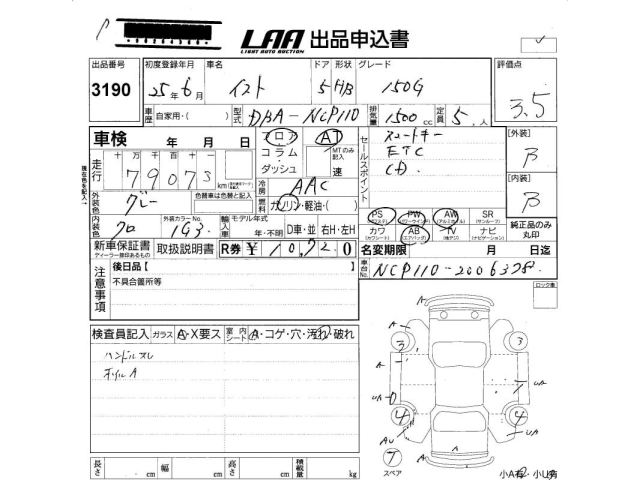 LAA 出品申込書
LIGHT AUTO AUCTION
出品番号 初度登録年月 車名 ドア 形状 グレード 評価点
3190 25年6月 イスト 5 H/B 150G 3.5
車歴 自家用・( ) 型式 DBA-NCP110 排気量 1500 cc 定員 5 人
車検 年 月 日 フロア AT セールスポイント スマートキー [外装]
走行 十万 万 千 百 十 コラム MTのみ記入 ETC B
79075 km ダッシュ 速 CD
現在色を記入
外装色 グレー 色替車は色替と記入 冷房 AAC [内装]
燃料 ガソリン・軽油・( ) B
内装色 クロ 外装カラーNo. 1G3 輸入車 モデル年式 年・不明 D車・並 右H・左H
PS (パワステ) PW (パワーウインド) AW (アルミホイール) SR (サンルーフ) 純正品のみ丸印
カワ (カワシート) AB (エアバッグ) TV (地デジ) ナビ (ナビゲーション)
新車保証書 ディーラー捺印あるもの 取扱説明書 R券 ¥ 10,720 名変期限 月 日迄
注意事項 後日品【 】 車台No. NCP110-2006378
不具合箇所等 ロック車
検査員記入 ガラス A・X要ス 室内シート A・コゲ・穴・汚れ・破れ
ハンドルスレ
ホイルA
A
A A
3 3
A A
UA UA
4 4
AU UA
7 A
スペア 小A有 小U有
長さ cm 幅 cm 高さ cm 積載量 kg